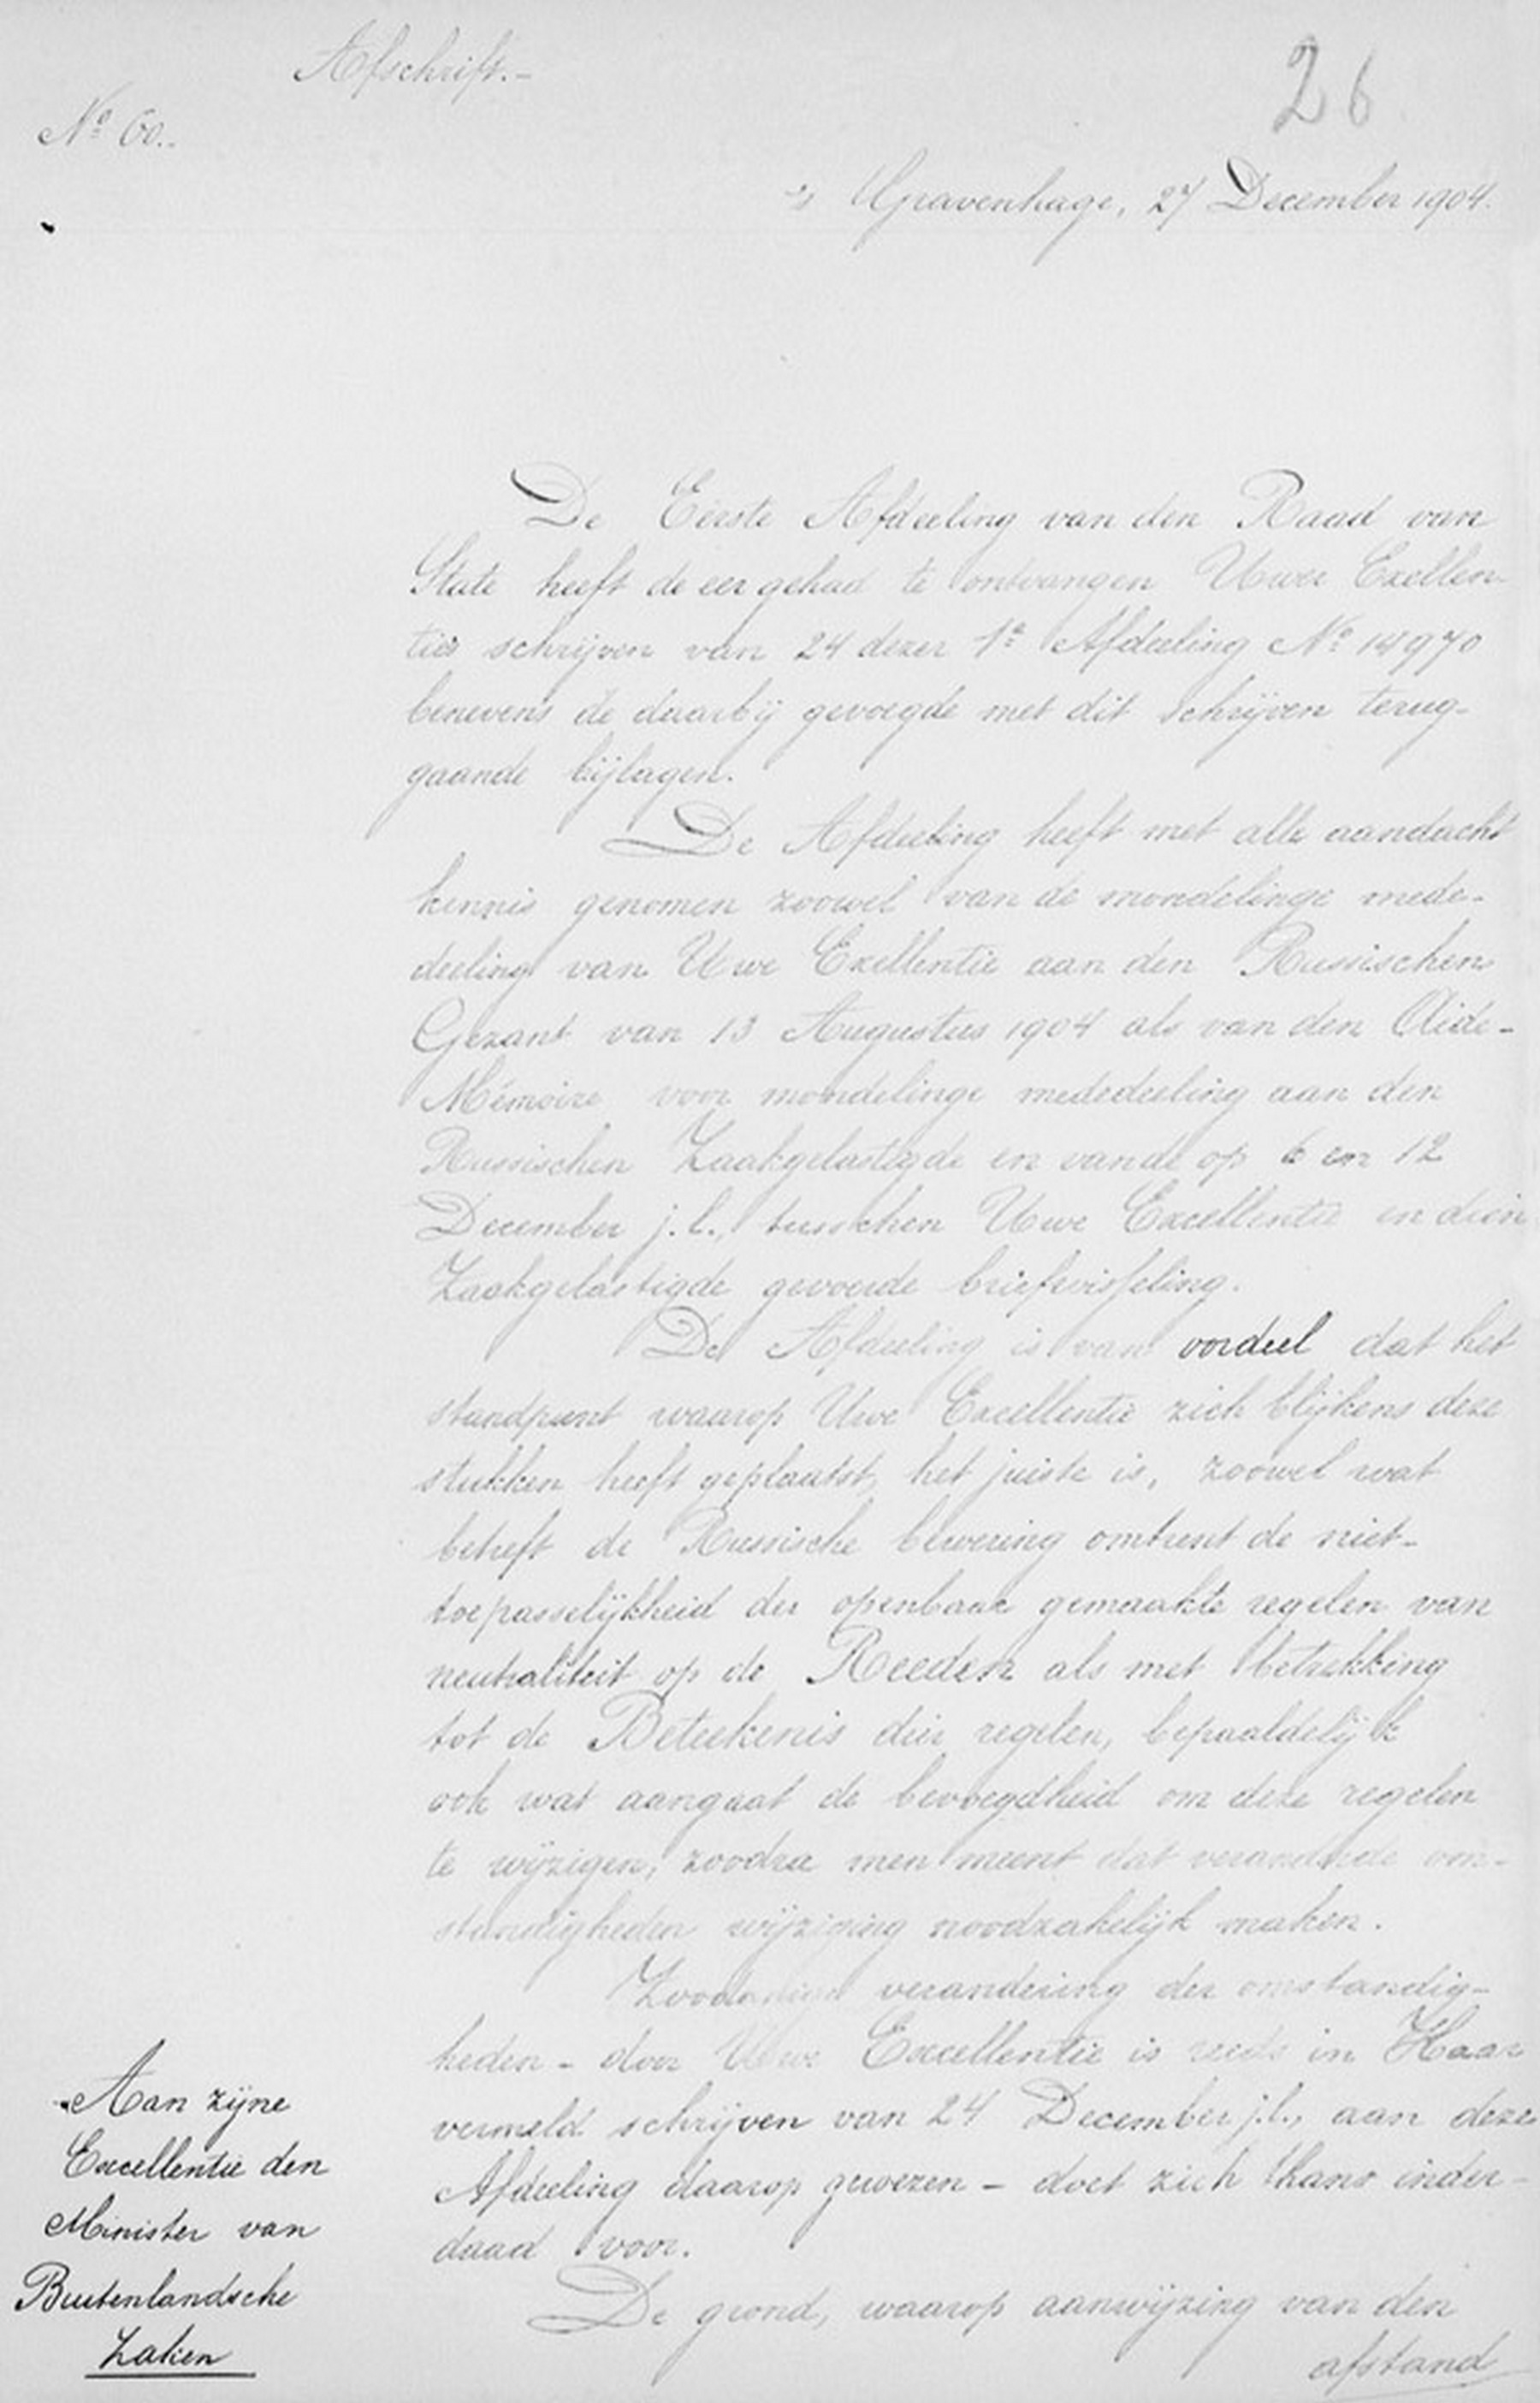 Afschrift.-
26
No 60.
's Gravenhage, 27 December 1904.
De Eerste Afdeeling van den Raad van
State heeft de eer gehad te ontvangen Uwer Exellen-
ties schrijven van 24 dezer 1e Afdeeling No 14970
benevens de daarbij gevoegde met dit schrijven terug-
gaande bijlagen.
De Afdeeling heeft met alle aandacht
kennis genomen zoowel van de mondelinge mede-
deeling van Uwe Exellentie aan den Russischen
Gezant van 13 Augustus 1904 als van den Aide-
Mémoire voor mondelinge mededeeling aan den
Russischen Zaakgelastigde en van de op 6 en 12
December j.l., tusschen Uwe Excellentie en dien
Zaakgelastigde gevoerde briefwisseling.
De Afdeeling is van oordeel dat het
standpunt waarop Uwe Excellentie zich blijkens deze
stukken heeft geplaatst, het juiste is, zoowel wat
betreft de Russische bewering omtrent de niet-
toepasselijkheid der openbaar gemaakte regelen van
neutraliteit op de Reeden als met betrekking
tot de Beteekenis dier regelen, bepaaldelijk
ook wat aangaat de bevoegdheid om deze regelen
te wijzigen, zoodra men meent dat veranderde om-
standigheden wijziging noodzakelijk maken.
Zoodanige verandering der omstandig-
heden - door Uwe Excellentie is reeds in Haar
vermeld schrijven van 24 December j.l., aan deze
Afdeeling daarop gewezen - doet zich thans inder-
daad voor.
De grond, waarop aanwijzing van den
afstand
Aan zijne
Excellentie den
Minister van
Buitenlandsche
Zaken